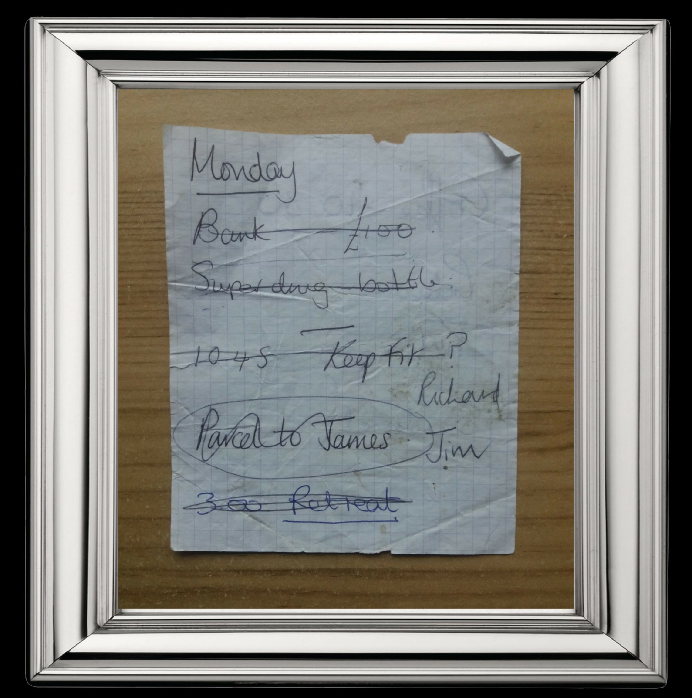 Monday
Bank £100
Superdrug bottle
10 45 Keep Fit ?
Richard
Parcel to James. Jim
3 00 Retreat